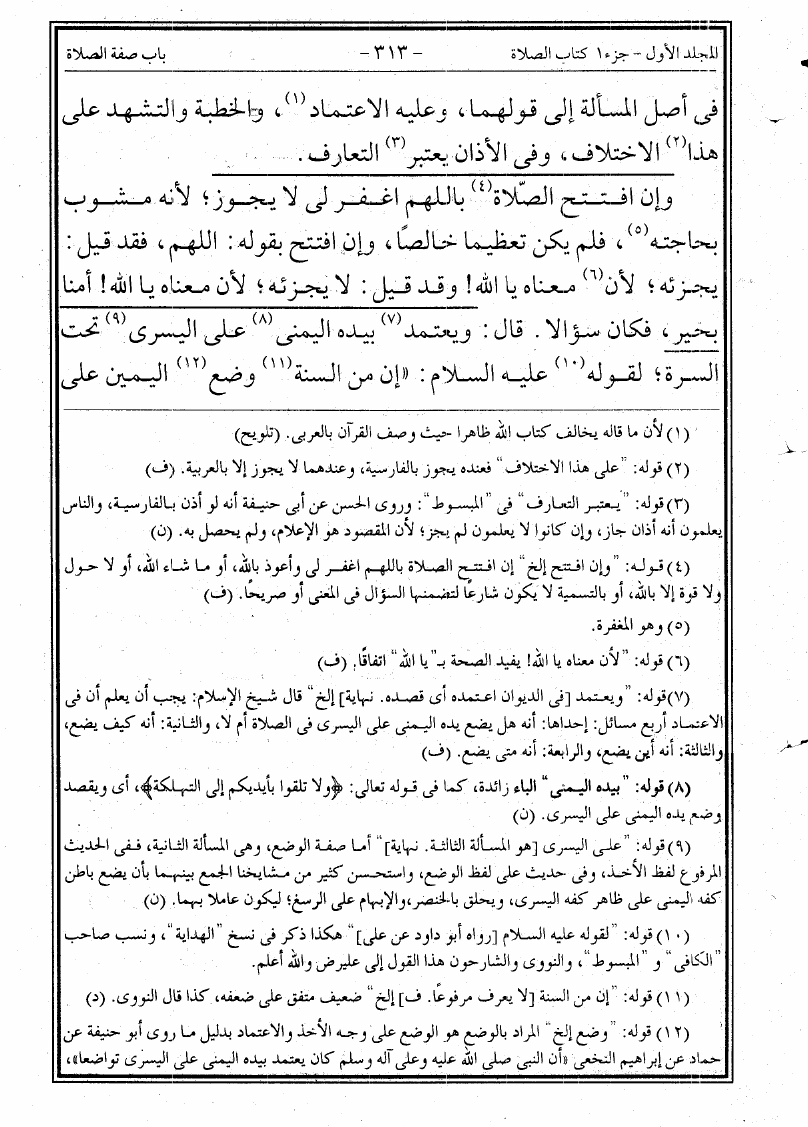 المجلد الأول - جزء١ كتاب الصلاة - ٣١٣ - باب صفة الصلاة
فى أصل المسألة إلى قولهما، وعليه الاعتماد(١)، والخطبة والتشهد على
هذا(٢) الاختلاف، وفى الأذان يعتبر(٣) التعارف.
وإن افتتح الصّلاة(٤) باللهم اغفر لى لا يجوز؛ لأنه مشوب
بحاجته(٥)، فلم يكن تعظيما خالصًا، وإن افتتح بقوله: اللهم، فقد قيل:
يجزئه؛ لأن(٦) معناه يا الله! وقد قيل: لا يجزئه؛ لأن معناه يا الله! أمنا
بخير، فكان سؤالا. قال: ويعتمد(٧) بيده اليمنى(٨) على اليسرى(٩) تحت
السرة؛ لقوله(١٠) عليه السلام: «إن من السنة(١١) وضع(١٢) اليمين على
(١) لأن ما قاله يخالف كتاب الله ظاهرا حيث وصف القرآن بالعربى. (تلويح)
(٢) قوله: "على هذا الاختلاف" فعنده يجوز بالفارسية، وعندهما لا يجوز إلا بالعربية. (ف)
(٣) قوله: "يعتبر التعارف" فى "المبسوط": وروى الحسن عن أبى حنيفة أنه لو أذن بالفارسية، والناس
يعلمون أنه أذان جاز، وإن كانوا لا يعلمون لم يجز؛ لأن المقصود هو الإعلام، ولم يحصل به. (ن)
(٤) قوله: "وإن افتتح إلخ" إن افتتح الصلاة باللهم اغفر لى وأعوذ بالله، أو ما شاء الله، أو لا حول
ولا قوة إلا بالله، أو بالتسمية لا يكون شارعًا لتضمنها السؤال فى المعنى أو صريحًا. (ف)
(٥) وهو المغفرة.
(٦) قوله: "لأن معناه يا الله! يفيد الصحة بـ"يا الله" اتفاقًا. (ف)
(٧) قوله: "ويعتمد [فى الديوان اعتمده أى قصده. نهاية] إلخ" قال شيخ الإسلام: يجب أن يعلم أن فى
الاعتماد أربع مسائل: إحداها: أنه هل يضع يده اليمنى على اليسرى فى الصلاة أم لا، والثانية: أنه كيف يضع،
والثالثة: أنه أين يضع، والرابعة: أنه متى يضع. (ف)
(٨) قوله: "بيده اليمنى" الباء زائدة، كما فى قوله تعالى: ﴿ولا تلقوا بأيديكم إلى التهلكة﴾، أى ويقصد
وضع يده اليمنى على اليسرى. (ن)
(٩) قوله: "على اليسرى [هو المسألة الثالثة. نهاية]" أما صفة الوضع، وهى المسألة الثانية، ففى الحديث
المرفوع لفظ الأخذ، وفى حديث على لفظ الوضع، واستحسن كثير من مشايخنا الجمع بينهما بأن يضع باطن
كفه اليمنى على ظاهر كفه اليسرى، ويحلق بالخنصر،والإبهام على الرسغ؛ ليكون عاملا بهما. (ن)
(١٠) قوله: "لقوله عليه السلام [رواه أبو داود عن على]" هكذا ذكر فى نسخ "الهداية"، ونسب صاحب
"الكافى" و "المبسوط"، والنووى والشارحون هذا القول إلى علىرض والله أعلم.
(١١) قوله: "إن من السنة [لا يعرف مرفوعًا. ف] إلخ" ضعيف متفق على ضعفه، كذا قال النووى. (د)
(١٢) قوله: "وضع إلخ" المراد بالوضع هو الوضع على وجه الأخذ والاعتماد بدليل ما روى أبو حنيفة عن
حماد عن إبراهيم النخعى «أن النبى صلى الله عليه وعلى آله وسلم كان يعتمد بيده اليمنى على اليسرى تواضعا»،